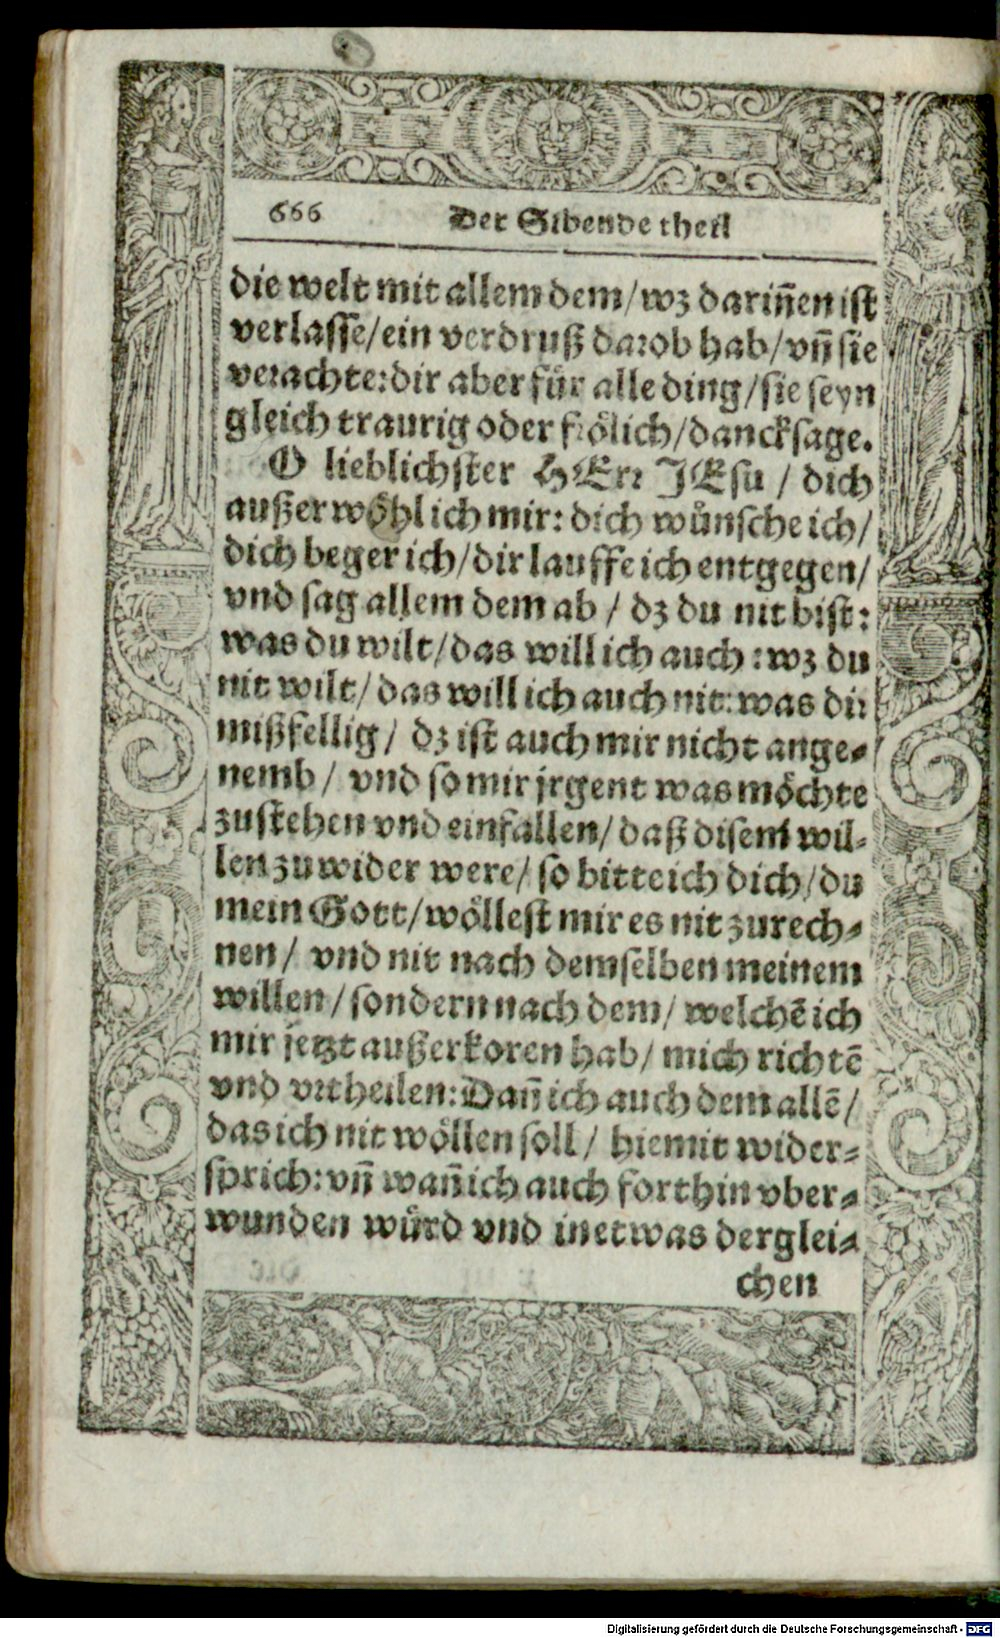 666 Der Sibende theil
die welt mit allem dem/ wz dariñen ist
verlasse/ ein verdruß darob hab/ vñ sie
verachte: dir aber für alle ding/ sie seyn
gleich traurig oder frölich/ dancksage.
O lieblichster HErr JEsu / dich
außerwöhl ich mir: dich wůnsche ich/
dich beger ich/ dir lauffe ich entgegen/
vnd sag allem dem ab / dz du nit bist:
was du wilt/ das will ich auch : wz du
nit wilt/ das will ich auch nit: was dir
mißfellig/ dz ist auch mir nicht ange-
nemb/ vnd so mir jrgent was möchte
zustehen vnd einfallen/ daß disem wil-
len zuwider were/ so bitte ich dich/ du
mein Gott/ wöllest mir es nit zurech-
nen/ vnd nit nach demselben meinem
willen/ sondern nach dem/ welchē ich
mir jetzt außerkoren hab/ mich richtē
vnd vrtheilen: Dañ ich auch dem allē/
das ich nit wöllen soll/ hiemit wider-
sprich: vñ wañ ich auch forthin vber-
wunden wůrd vnd in etwas derglei-
chen
Digitalisierung gefördert durch die Deutsche Forschungsgemeinschaft - DFG